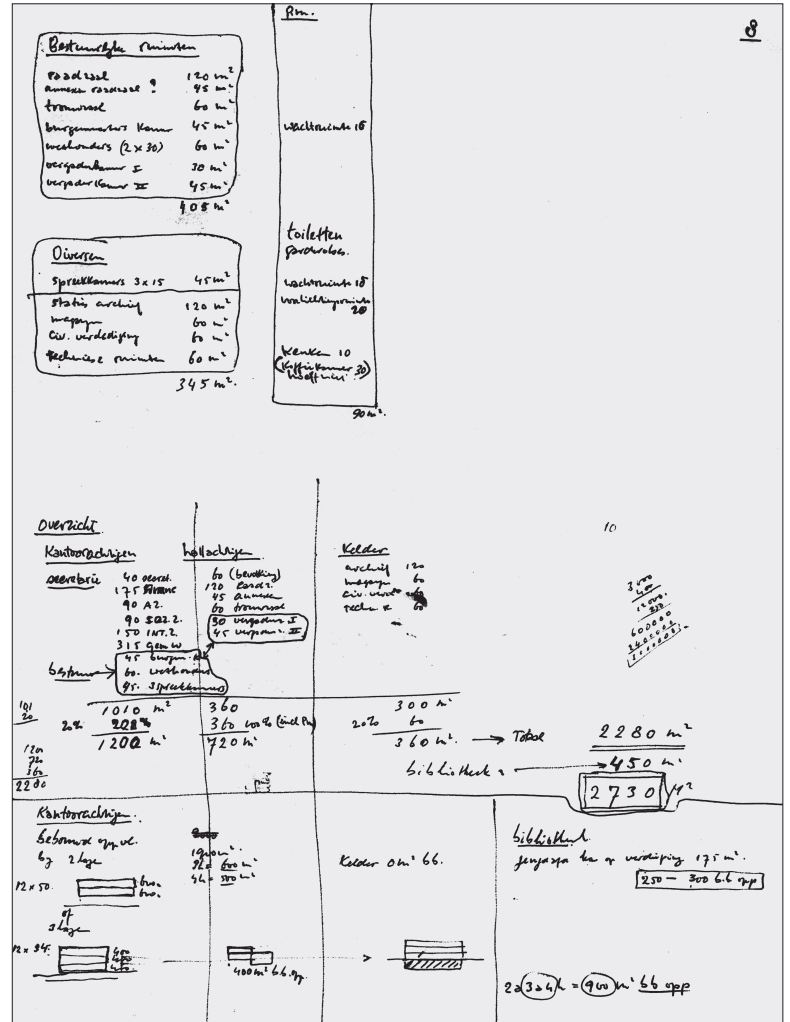 8
Bestuurlijke ruimten
raadzaal 120 m²
annexen raadzaal ? 45 m²
trouwzaal 60 m²
burgemeesters kamer 45 m²
wethouders (2 x 30) 60 m²
vergaderkamer I 30 m²
vergaderkamer II 45 m²
405 m²
Diversen
spreekkamers 3 x 15 45 m²
statis archief 120 m²
magazyn 60 m²
Civ. verdediging 60 m²
techniese ruimten 60 m²
345 m².
P.m.
wachtruimte 15
toiletten
garderobes.
wachtruimte 15
voorlichtingsruimte
20
keuken 10
(koffiekamer 30)
90 m².
Overzicht
Kantoorachtigen
secretarie 40 secret.
175
90 AZ.
90 SOZ.Z.
150 INT.Z.
315 gem W
bestuur
45 burgem.
60. wethouders
45. 3 spreekkamers
1010 m²
20%
1200 m²
halachtigen
60 (bevolking)
120 raadz.
45 annexen
60 trouwzaal
30 vergaderz. I
45 vergaderz. II
360
360 100% (incl Pm)
720 m²
Kelder
archief 120
magazyn 60
Civ. verd
techn. r 60
300 m²
20% 60
360 m². → Totaal
2280 m²
bibliotheek → 450 m²
2730 M²
10
3000
400
101
20
1200
720
360
2280
Kantoorachtigen.
Bebouwd opp. vl.
by 2 lage
12 x 50.
600.
600.
of
3 lage
12 x 34.
400
400
400
3h = 600 m²
4h = 500 m²
400 m² bb. opp.
Kelder 0 m² bb.
bibliotheek
op verdieping 175 m².
250 – 300 b.b opp
2 à 3 à 4 h = 900 m² bb opp